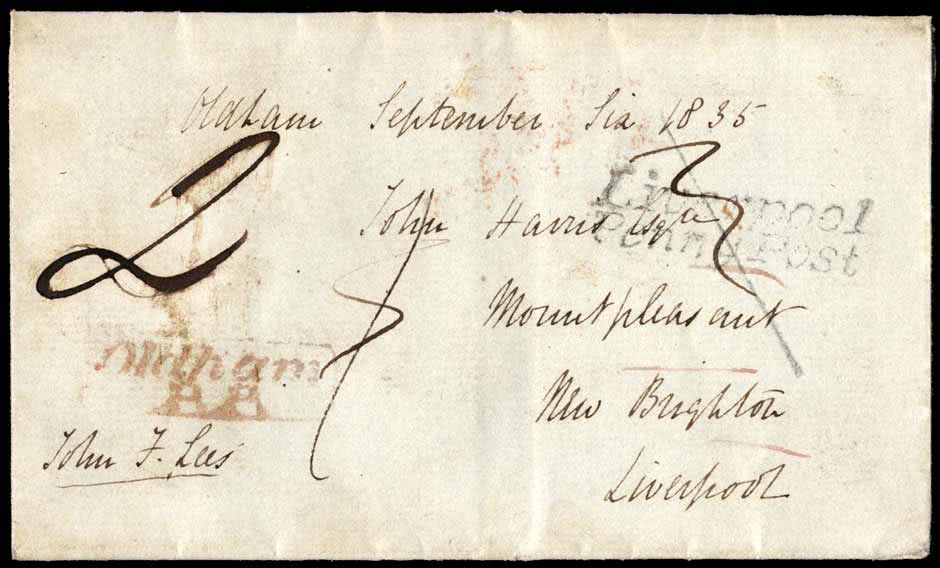 Oldham September Six 1835
2
Liverpool
Penny Post
John Harris Esqre
Mountpleasant
Oldham
New Brighton
John F. Lees
Liverpool